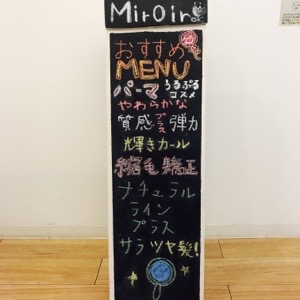 MirOir
おすすめ
MENU
パーマ うるぷる
コスメ
やわらかな
質感プラス弾力
輝きカール
縮毛矯正
ナチュラル
ライン
プラス
サラツヤ髪!